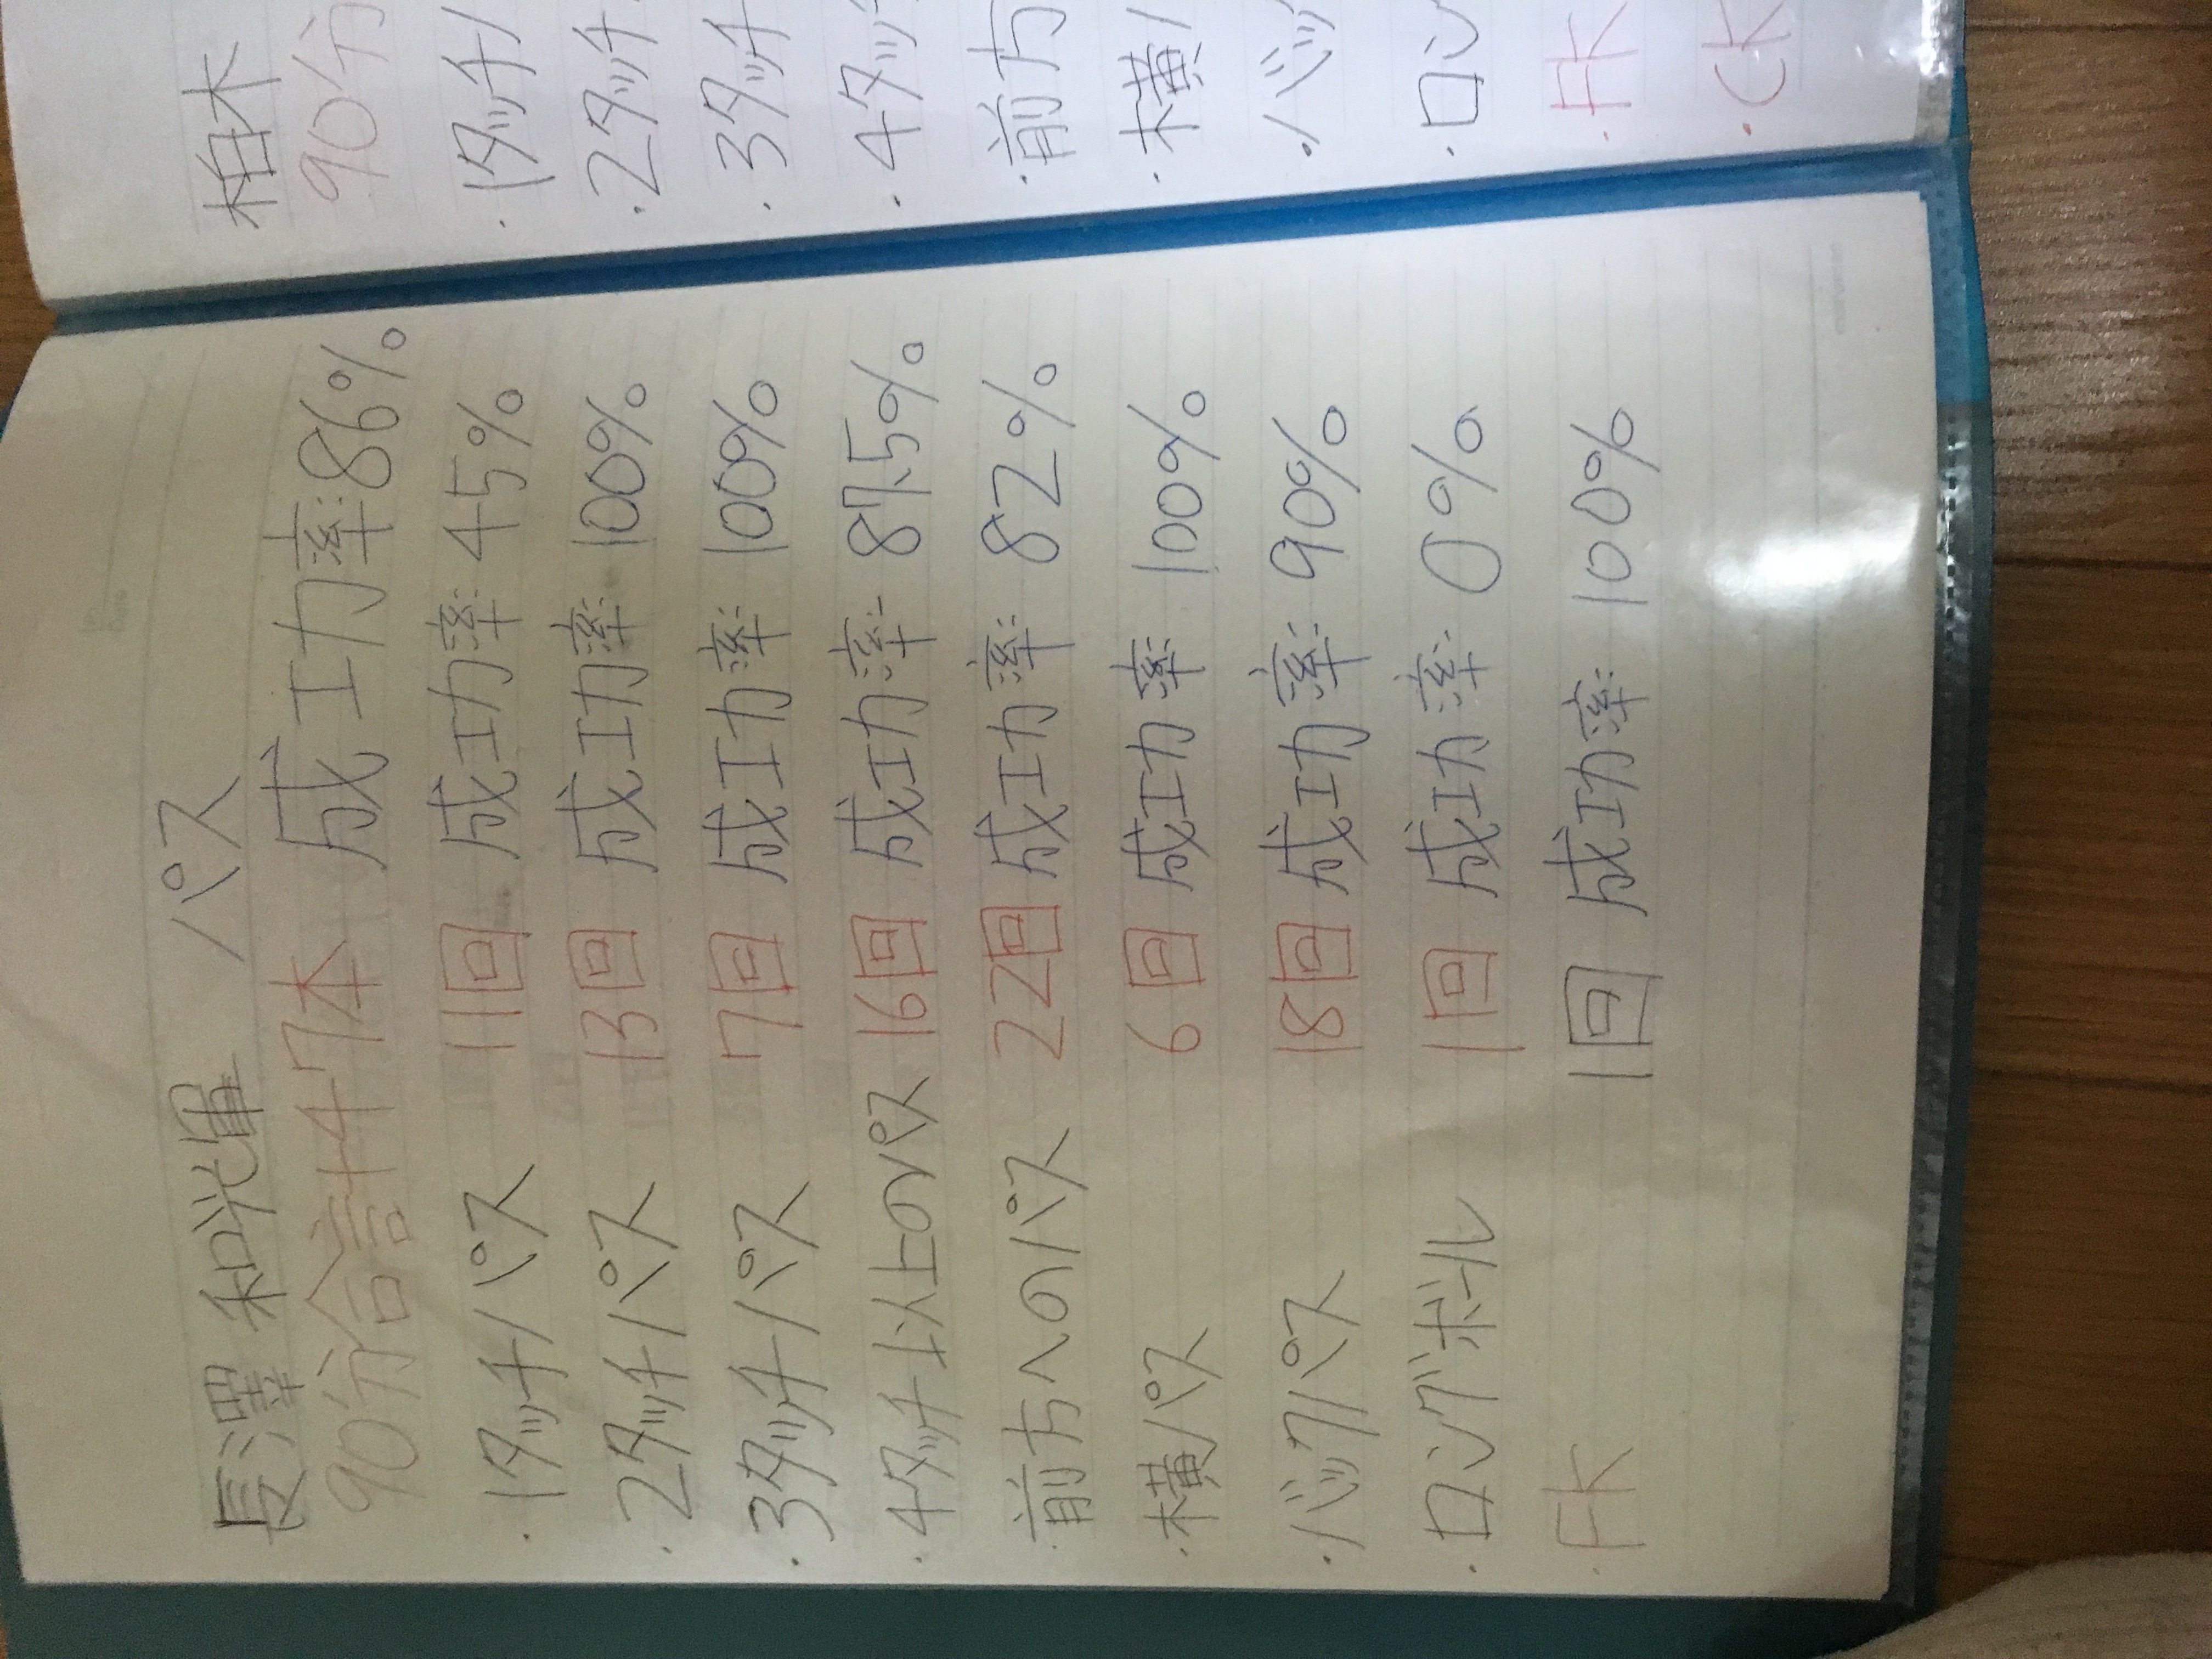 長澤 和光軍 パス
90分合計47本 成功率:86%
・1タッチパス 11回 成功率:45%
・2タッチパス 13回 成功率:100%
・3タッチパス 7回 成功率:100%
・4タッチ以上のパス 16回 成功率:87.5%
・前方へのパス 22回 成功率:82%
・横パス 6回 成功率:100%
・バックパス 18回 成功率:90%
・ロングボール 1回 成功率:0%
・FK 1回 成功率:100%
柏木
90分
・1タッチ
・2タッチ
・3タッチ
・4タッ
・前方
・横パ
・バッ
・ロン
・FK
・CK